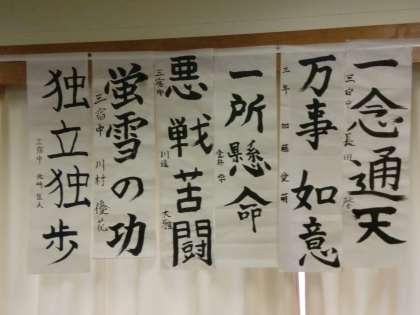 一念通天
三宿中 長田
万事如意
三年 加藤 愛萌
一所懸命
悪戦苦闘
三宿中 川辺 大翔
蛍雪の功
三宿中 川村 優花
独立独歩
三宿中